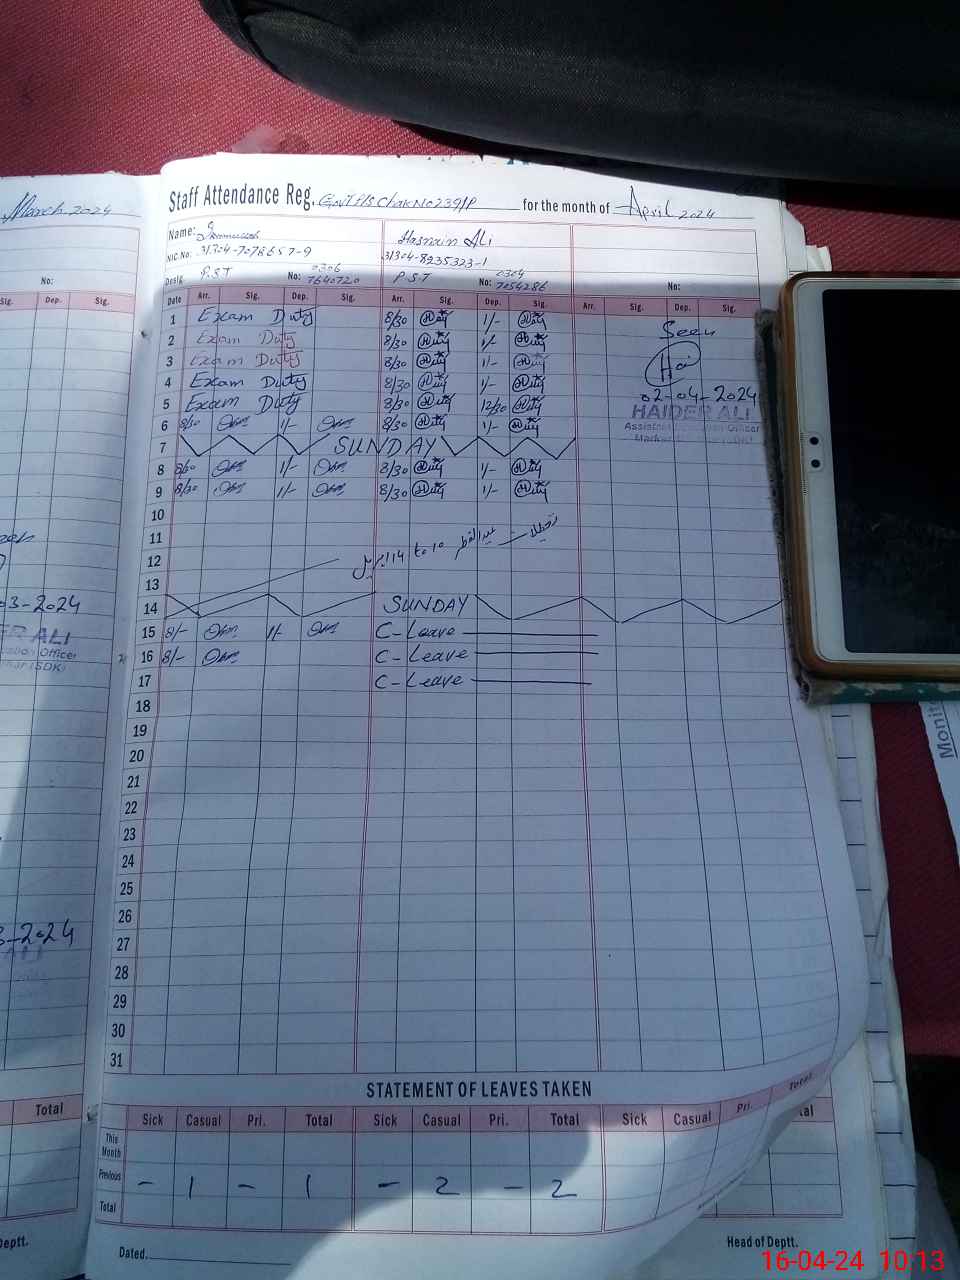 March 2024
Staff Attendance Reg. Chak No 239/P for the month of April 2024
Name: Hasnain Ali
NIC.No: 31304-7078657-9 31304-8235323-1
Desig. P.ST No: 0306 7640720 PST No: 0304 7054286 No:
No:
Sig. Dep. Sig.
Date Arr. Sig. Dep. Sig. Arr. Sig. Dep. Sig. Arr. Sig. Dep. Sig.
1 Exam Duty 8/30 1/- Seen
2 Exam Duty 8/30 1/-
3 Exam Duty 8/30 1/-
4 Exam Duty 8/30 1/- 02-04-2024
5 Exam Duty 8/30 12/30 HAIDER ALI
6 8/30 1/- 8/30 1/- Assistant Education Officer
7 SUNDAY
8 8/30 1/- 8/30 1/-
9 8/30 1/- 8/30 1/-
10
11
12 تعطیلات عیدالفطر 10 to 14 اپریل
13
14 SUNDAY
15 8/- 1/- C-Leave
16 8/- C-Leave
17 C-Leave
18
19
20
21
22
23
24
25
26
27
28
29
30
31
03-2024
ALI
3-2024
Monito
STATEMENT OF LEAVES TAKEN
Total
Sick Casual Pri. Total Sick Casual Pri. Total Sick Casual Pri. Total
This Month
Previous - 1 - 1 - 2 - 2
Total
Deptt.
Dated. Head of Deptt.
16-04-24 10:13